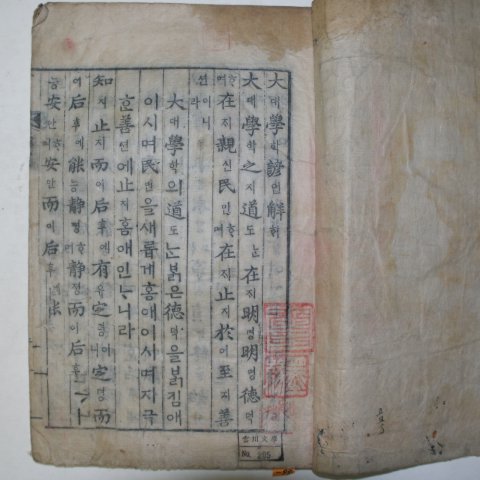 大대學학諺언解ᄒᆡ
大대學학之지道도ᄂᆞᆫ在ᄌᆡ明명明명德덕
ᄒᆞ며在ᄌᆡ親신民민ᄒᆞ며在ᄌᆡ止지於어至지善
션이니라
大대學학의道도ᄂᆞᆫ붉은德덕을붉킴애
이시며民민을새롭게홈애이시며지극
ᄒᆞᆫ善션에止지홈애인ᄂᆞ니라
知지止지而이后후에有유定뎡이니定뎡而
이后후에能능静졍ᄒᆞ며静졍而이后후에
능安안ᄒᆞ며安안而이后후
No. 205